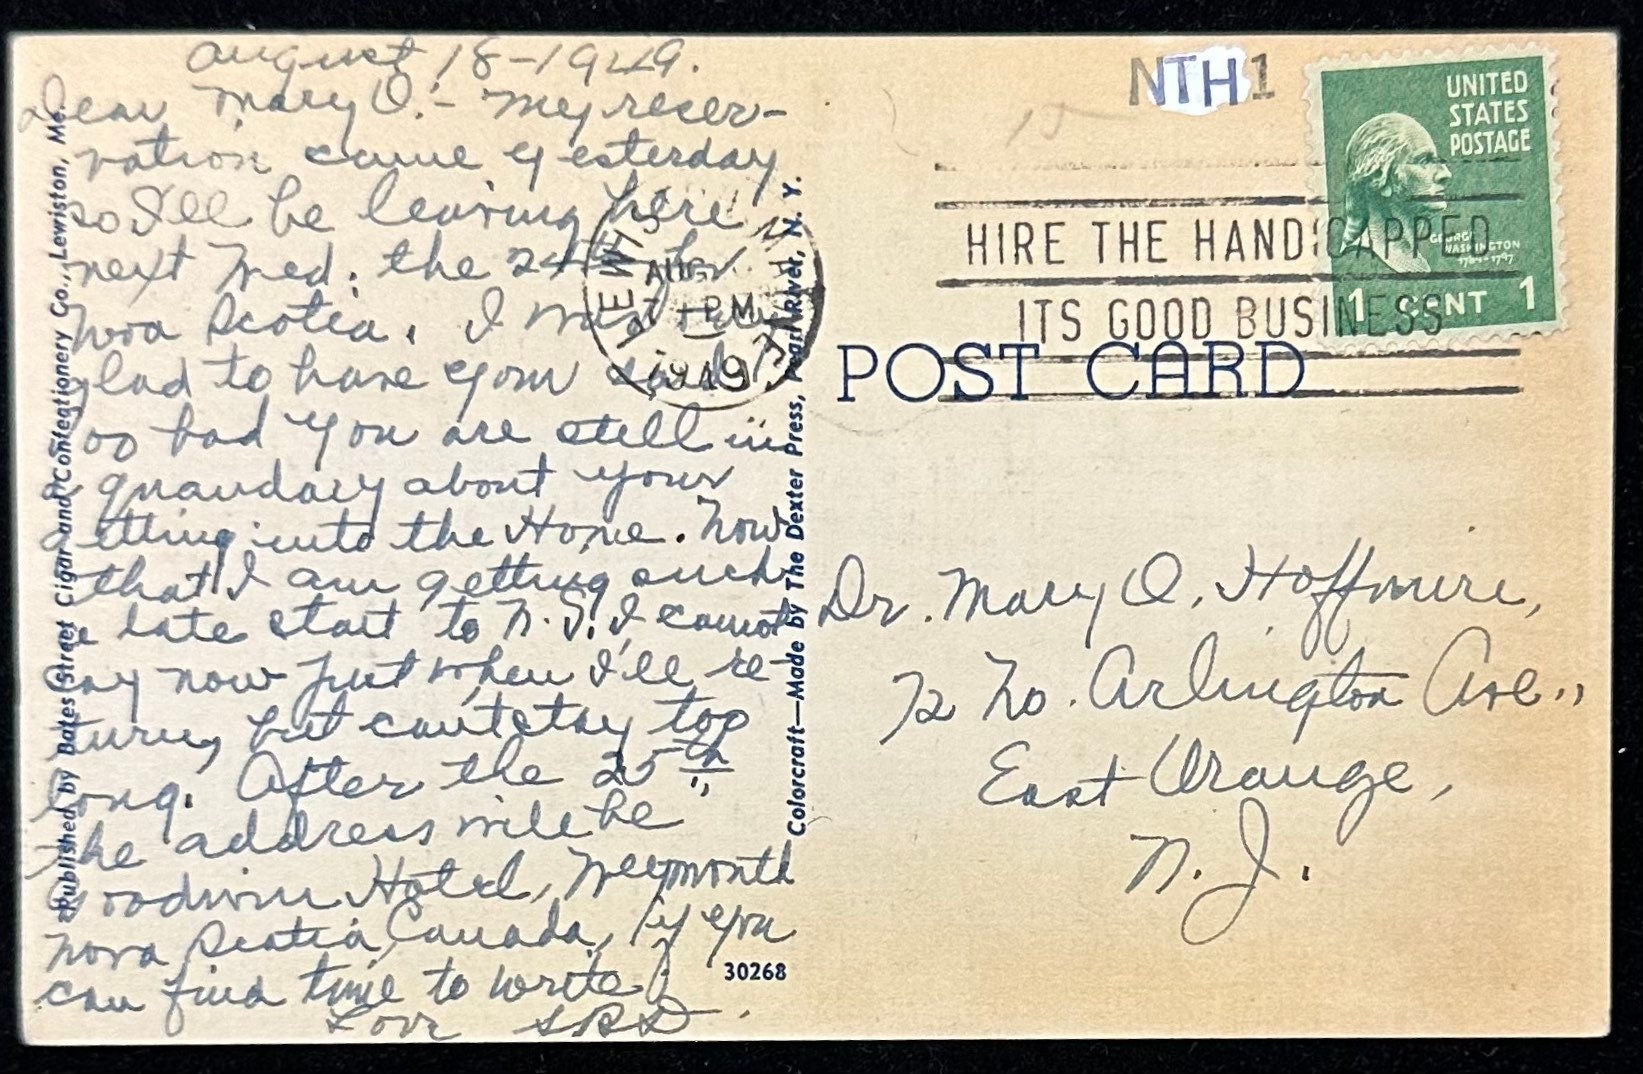 August 18-1949.
Dear Mary O.- My reser-
vation came yesterday
so I'll be leaving here
next Wed. the 24th for
Nova Scotia. I was
glad to have your card.
Too bad you are still in
a quandary about your
getting into the Home. Now
that I am getting such
a late start to N.S. I cannot
say now just when I'll re-
turn, but can't stay too
long. After the 25th
the address will be
Goodwin Hotel, Weymouth
Nova Scotia, Canada, if you
can find time to write.
Love SBD.
Published by Bates Street Cigar and Confectionery Co., Lewiston, Me.
Colorcraft—Made by The Dexter Press, Pearl River, N. Y.
30268
LEWISTON MAINE
AUG
7 - PM
1949
NTH1
15
HIRE THE HANDICAPPED
ITS GOOD BUSINESS
UNITED
STATES
POSTAGE
GEORGE
WASHINGTON
1789-1797
1 CENT 1
POST CARD
Dr. Mary O. Hoffmire,
72 No. Arlington Ave.,
East Orange,
N.J.